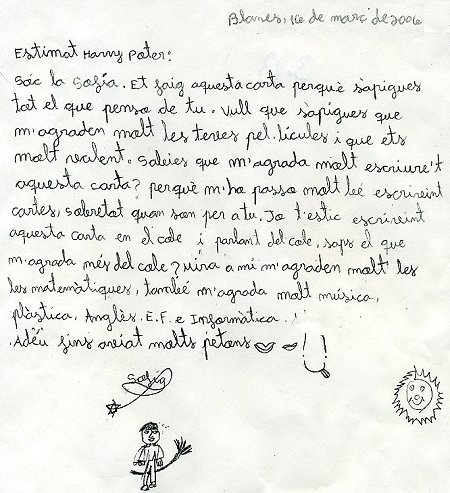 Blanes, 16 de març de 2006
Estimat Harry Poter:
Sóc la Sofía. Et faig aquesta carta perquè sàpigues
tot el que penso de tu. Vull que sàpigues que
m'agraden molt les teves pel·lícules i que ets
molt valent. Sabies que m'agrada molt escriure't
aquesta carta? perquè m'ho passo molt bé escribint
cartes, sobretot quan son per a tu. Jo t'estic escribint
aquesta carta en el cole i parlant del cole, saps el que
m'agrada més del cole? mira a mi m'agraden molt les
les matemàtiques, també m'agrada molt música,
plàstica, Anglès. E.F. e Informàtica.
Adéu fins aviat molts petons
Sofía